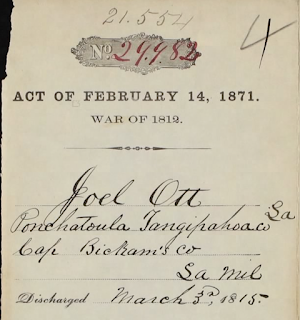 21.554
No. 29982
4
ACT OF FEBRUARY 14, 1871.
WAR OF 1812.
Joel Ott
Ponchatoula Tangipahoa co La
Cap Bickam's Co
La Mil
Discharged March 3d, 1815.